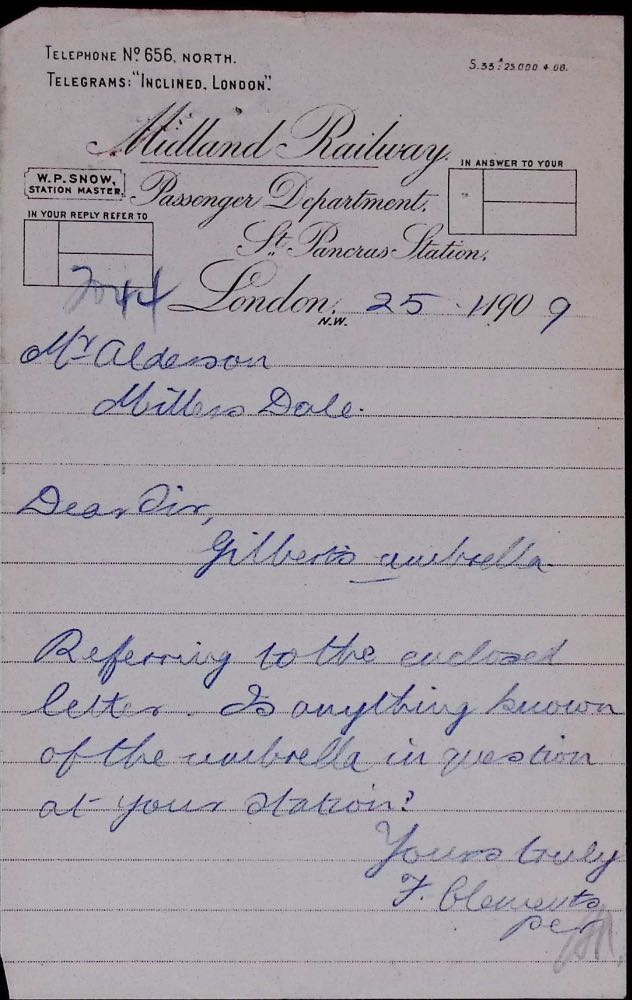 TELEPHONE Nº 656, NORTH.
TELEGRAMS: "INCLINED, LONDON".
Midland Railway.
W.P. SNOW,
STATION MASTER.
IN ANSWER TO YOUR
Passenger Department,
IN YOUR REPLY REFER TO
St. Pancras Station,
London, 25 1 1909
N.W.
Mr Alderson
Millers Dale.
Dear Sir,
Gilbert's umbrella
Referring to the enclosed
letter. Is anything known
of the umbrella in question
at your station?
Yours truly
F. Clements
per